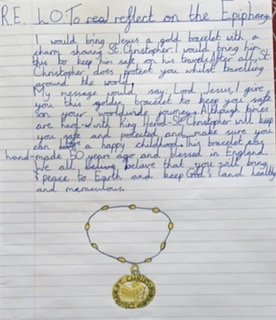 R.E. L.O. To reflect on the Epiphany
I would bring Jesus a gold bracelet with a
charm showing St. Christopher. I would bring him
this to keep him safe, on his travels. After all, St.
Christopher does protect you whilst travelling
around the world.
My message would say: Lord Jesus, I give
you this golden bracelet to keep you safe
on your worldwide journey. Although times
are hard with King Herod, St. Christopher will keep
you safe and protected, and make sure you
can have a happy childhood. This bracelet was
hand-made 50 years ago and blessed in England.
We all believe that you will bring
peace to Earth and keep God's land healthy
and miraculous.
ST. CHRIST
PROTECT